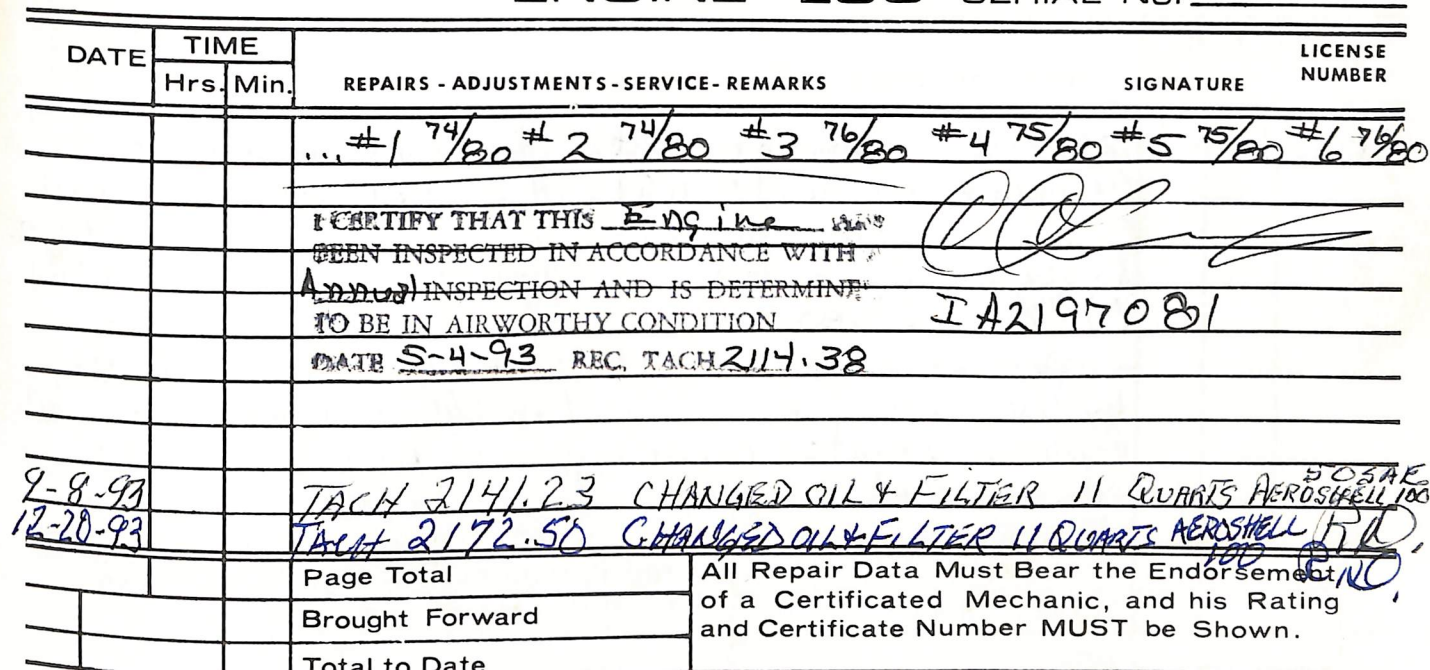 ENGINE LOG SERIAL NO.
DATE TIME
Hrs. Min. REPAIRS - ADJUSTMENTS - SERVICE - REMARKS SIGNATURE LICENSE NUMBER
...#1 74/80 #2 74/80 #3 76/80 #4 75/80 #5 75/80 #6 76/80
I CERTIFY THAT THIS Engine HAS
BEEN INSPECTED IN ACCORDANCE WITH
Annual INSPECTION AND IS DETERMINE
TO BE IN AIRWORTHY CONDITION
IA2197081
DATE 5-4-93 REC. TACH 2114.38
9-8-93 TACH 2141.23 CHANGED OIL & FILTER 11 QUARTS AEROSHELL 100
50 SAE
12-20-93 TACH 2172.50 CHANGED OIL & FILTER 11 QUARTS AEROSHELL
100
Page Total
Brought Forward
Total to Date
All Repair Data Must Bear the Endorsement
of a Certificated Mechanic, and his Rating
and Certificate Number MUST be Shown.